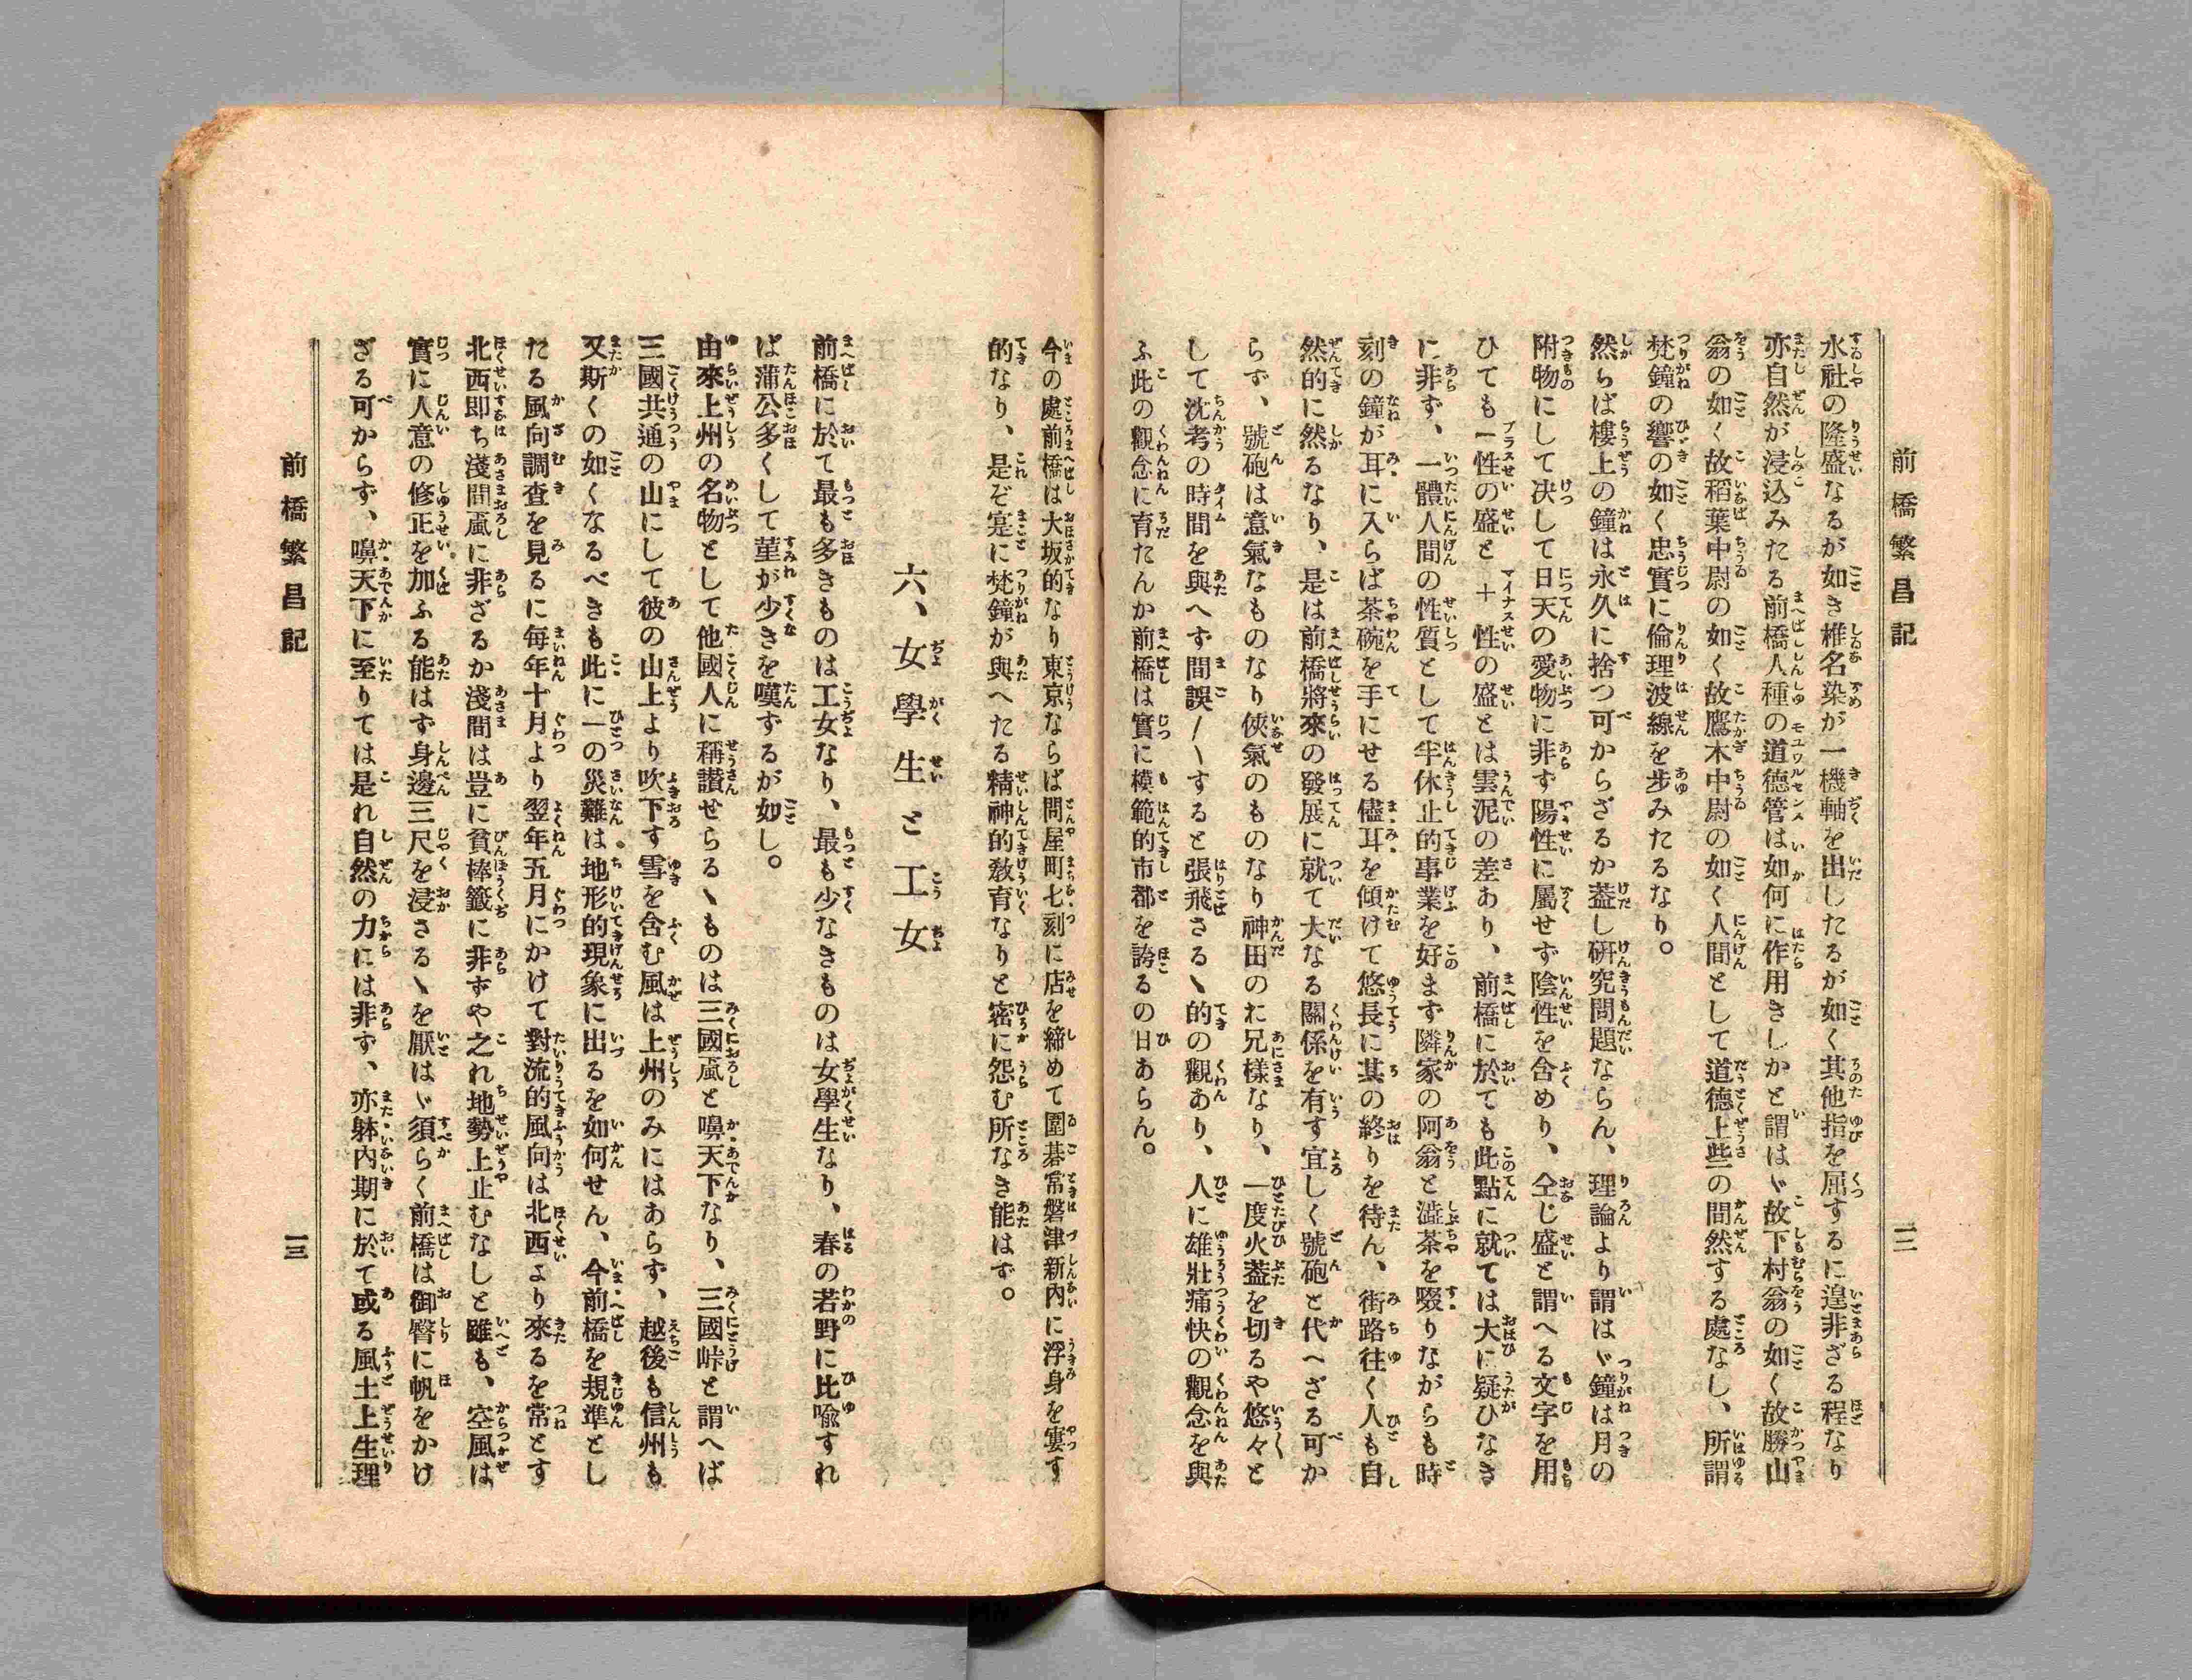 前橋繁昌記
一二
水社の隆盛なるが如き椎名染が一機軸を出したるが如く其他指を屈するに遑非ざる程なり
亦自然が浸込みたる前橋人種の道德管は如何に作用きしかと謂はゞ故下村翁の如く故勝山
翁の如く故稻葉中尉の如く故鷹木中尉の如く人間として道德上些の間然する處なし、所謂
梵鐘の響の如く忠實に倫理波線を步みたるなり。
然らば樓上の鐘は永久に捨つ可からざるか蓋し研究問題ならん、理論より謂はゞ鐘は月の
附物にして决して日天の愛物に非ず陽性に屬せず陰性を含めり、仝じ盛と謂へる文字を用
ひても一性の盛と十性の盛とは雲泥の差あり、前橋に於ても此點に就ては大に疑ひなき
に非ず、一體人間の性質として半休止的事業を好まず隣家の阿翁と澁茶を啜りながらも時
刻の鐘が耳に入らば茶碗を手にせる儘耳を傾けて悠長に其の終りを待ん、街路往く人も自
然的に然るなり、是は前橋將來の發展に就て大なる關係を有す宜しく號砲と代へざる可か
らず、號砲は意氣なものなり俠氣のものなり神田のわ兄樣なり、一度火蓋を切るや悠々と
して沈考の時間を與へず間誤〳〵すると張飛さるゝ的の觀あり、人に雄壯痛快の觀念を與
ふ此の觀念に育たんか前橋は實に模範的市都を誇るの日あらん。
今の處前橋は大坂的なり東京ならば問屋町七刻に店を締めて圍碁常磐津新內に浮身を窶す
的なり、是ぞ寔に梵鐘が與へたる精神的敎育なりと密に怨む所なき能はず。
六、女學生と工女
前橋に於て最も多きものは工女なり、最も少なきものは女學生なり、春の若野に比喩すれ
ば蒲公多くして菫が少きを嘆ずるが如し。
由來上州の名物として他國人に稱讚せらるゝものは三國颪と嚊天下なり、三國峠と謂へば
三國共通の山にして彼の山上より吹下す雪を含む風は上州のみにはあらず、越後も信州も
又斯くの如くなるべきも此に一の災難は地形的現象に出るを如何せん、今前橋を規準とし
たる風向調査を見るに每年十月より翌年五月にかけて對流的風向は北西より來るを常とす
北西卽ち淺間颪に非ざるか淺間は豈に貧棒籤に非ずや之れ地勢上止むなしと雖も、空風は
實に人意の修正を加ふる能はず身邊三尺を浸さるゝを厭はゞ須らく前橋は御臀に帆をかけ
ざる可からず、嚊天下に至りては是れ自然の力には非ず、亦躰內期に於て或る風土上生理
前橋繁昌記
一三